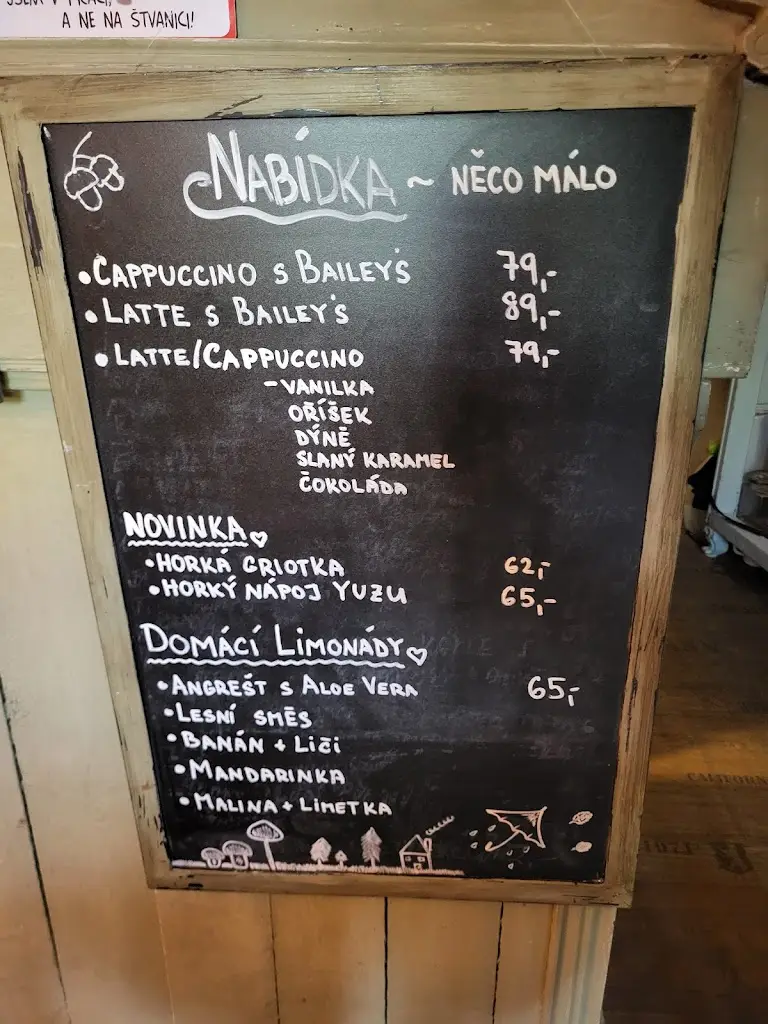 A NE NA ŠTVANICI!
NABÍDKA ~ NĚCO MÁLO
• CAPPUCCINO S BAILEY'S 79,-
• LATTE S BAILEY'S 89,-
• LATTE/CAPPUCCINO 79,-
- VANILKA
OŘÍŠEK
DÝNĚ
SLANÝ KARAMEL
ČOKOLÁDA
NOVINKA
• HORKÁ GRIOTKA 62,-
• HORKÝ NÁPOJ YUZU 65,-
DOMÁCÍ LIMONÁDY
• ANGREŠT S ALOE VERA 65,-
• LESNÍ SMĚS
• BANÁN + LIČI
• MANDARINKA
• MALINA + LIMETKA